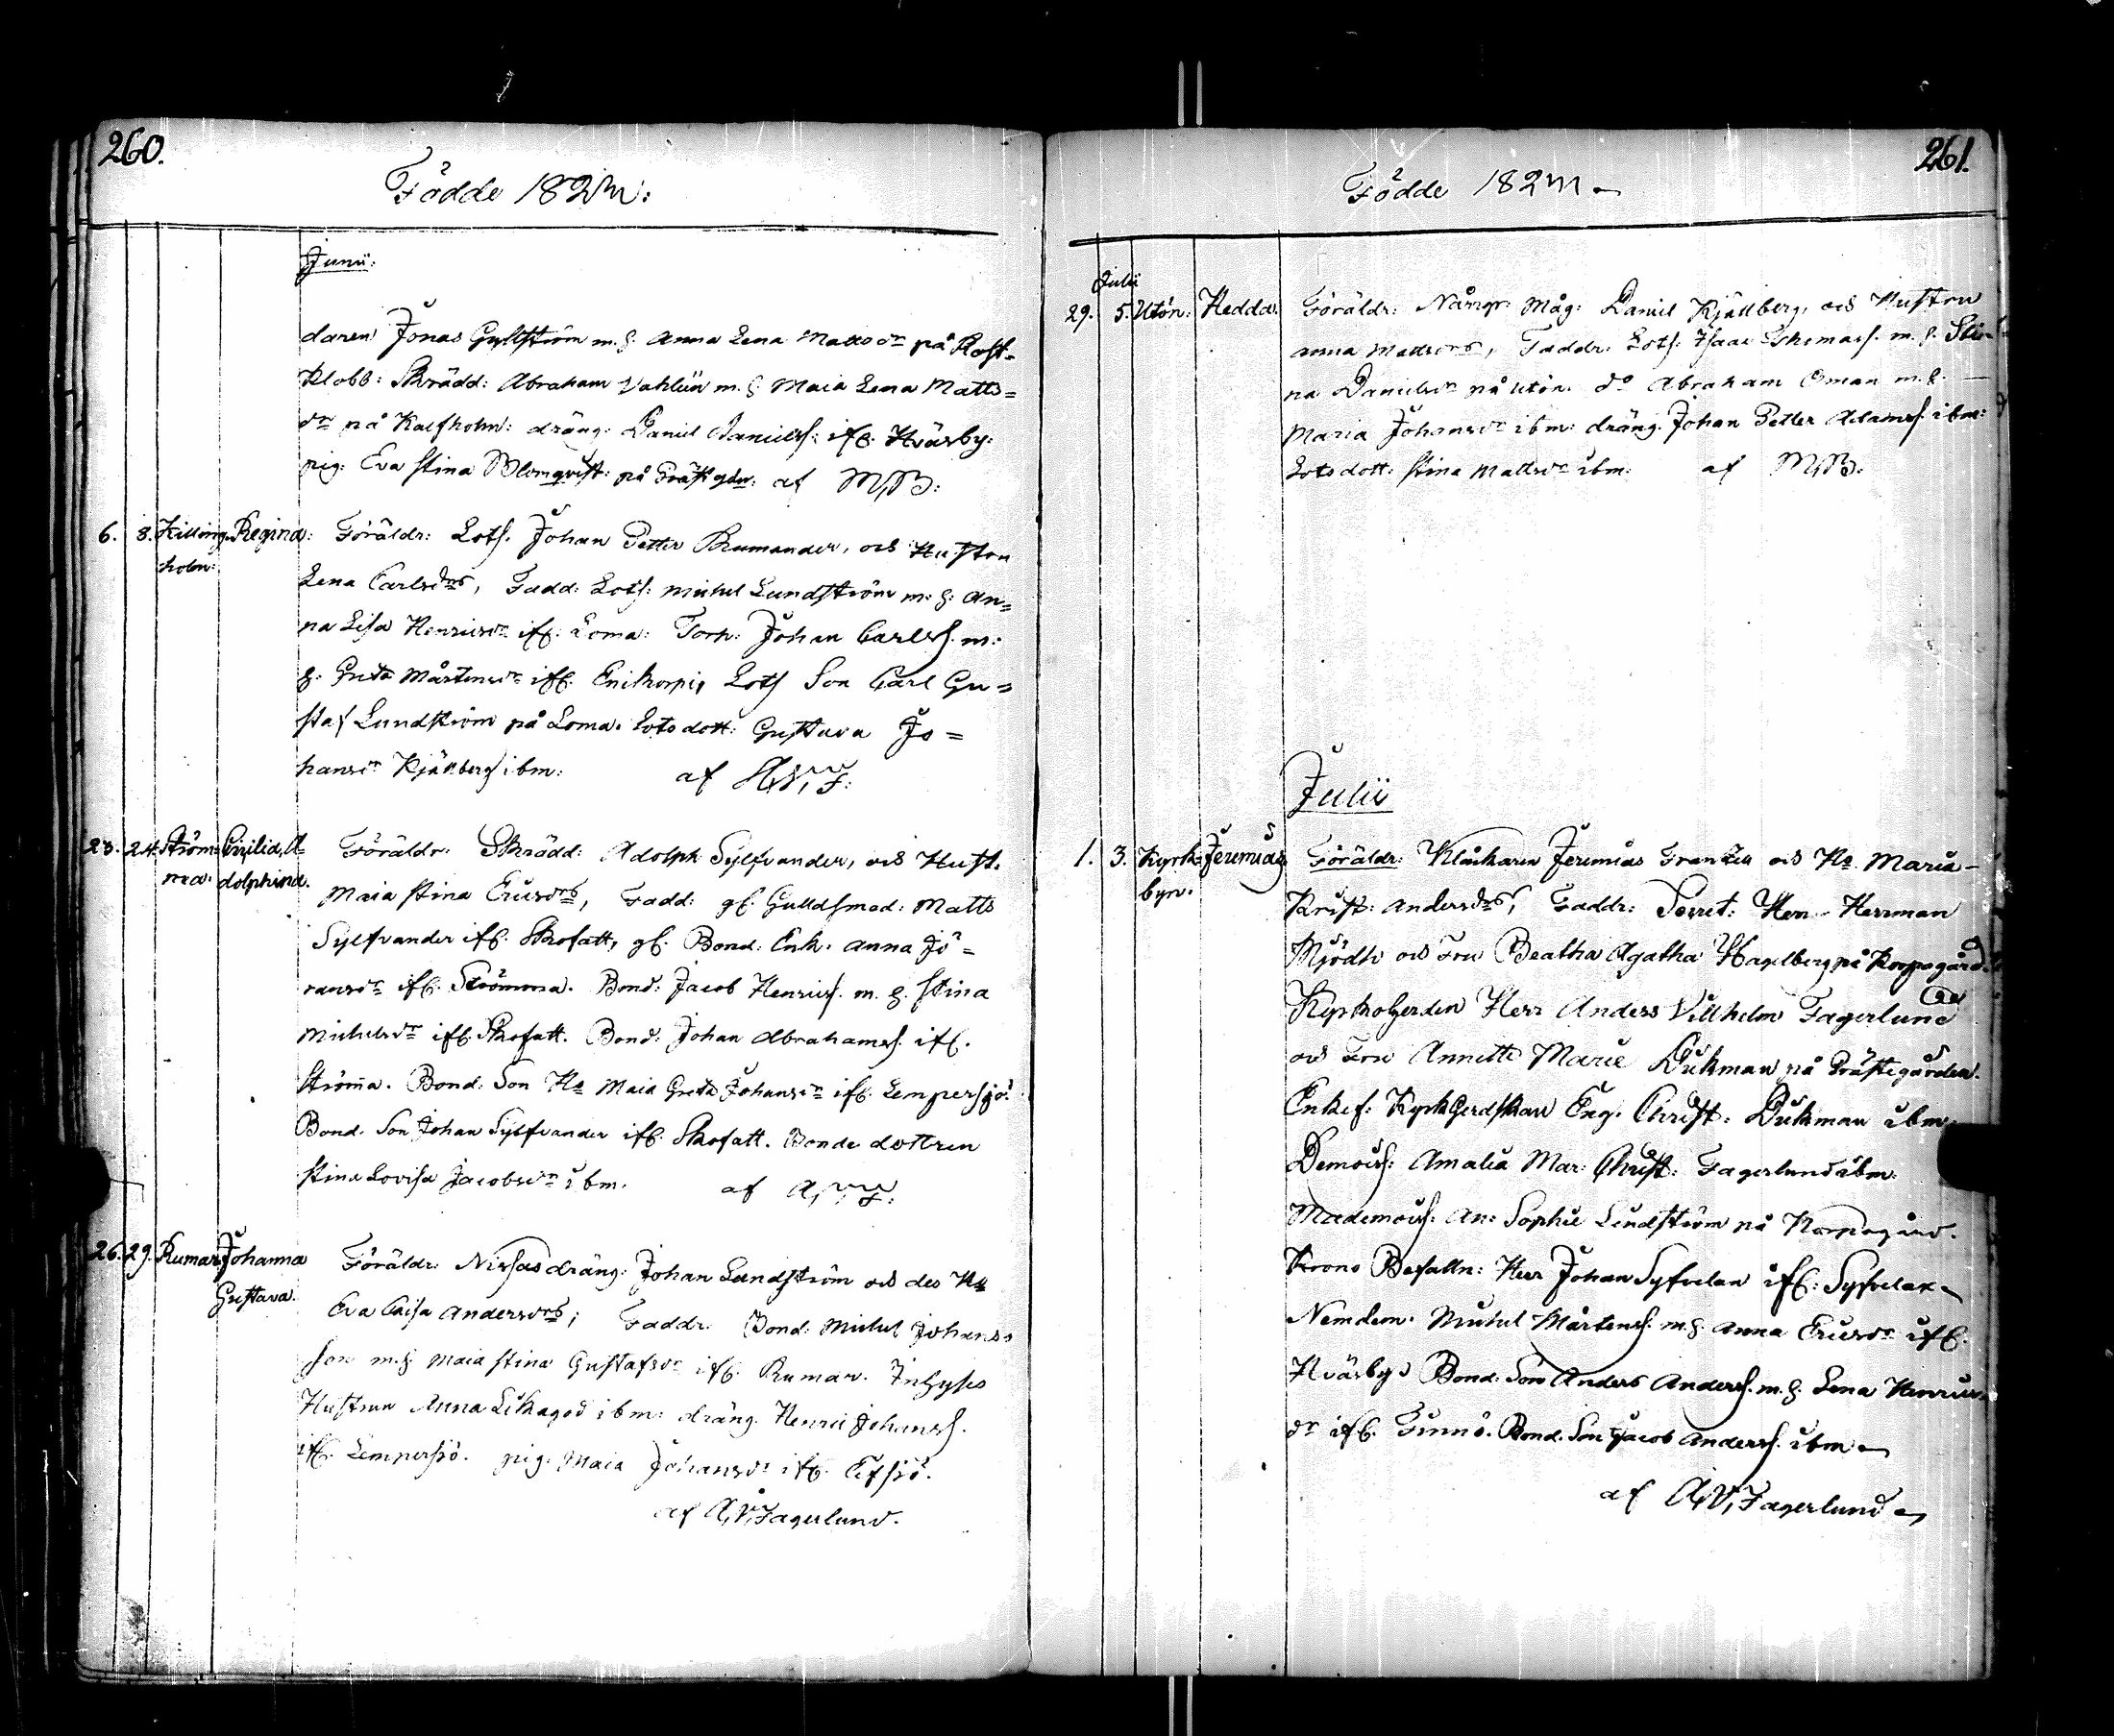 260.
Födde 182
Junii:
daren Jonas Gyllström m. h. Anna Lena Mattsdr på Rost=
klobb: Skrädd: Abraham Vahlün m. h Maia Lena Matts=
dr på Kalfholm: dräng: Daniel Daniels: ifr. Hväsby:
pig: Eva Stina Blomqvist: på Prästgdn: af M, B:
6. 8. Killing- Regina: Föräldr: Lots. Johan Petter Rumander, och Hustru
holm:
Lena Carlsdrs, Fadd: Lots: Michel Lundström m: h: An=
na Lisa Henricsdr ifr: Loma: Torp: Johan Carlss. m:
h. Greta Mårtensdr ifr. Enikorpi, Lots Son Carl Gu=
staf Lundström på Loma. Lotsdott: Gustava Jo=
hansdr Kjällberg ibm: af A, V, F:
23. 24. Ström- Cecilia, A-
ma. dolphina.
Föräldr: Skrädd: Adolph Sylfvander, och Hust.
Maia Stina Ericsdrs, Fadd: gl. Gulldsmed: Matts
Sylfvander ifr. Skofatt, gl. Bond: Enk: Anna Jö=
ransdr ifr. Strömma. Bond: Jacob Henrics. m. h. Stina
Michelsdr ifr. Skofatt. Bond: Johan Abrahams. ifr.
Ströma. Bond: Son Ha Maia Greta Johansdr ifr. Lempersjö.
Bond. Son Johan Sylfvander ifr. Skofatt. Bonde dottren
Stina Lovisa Jacobsdr ibm. af A, V, F:
26. 29. Rumar Johanna
Gustava.
Föräldr: dräng: Johan Lundström och des Ha
Eva Caisa Andersdrs; Faddr: Bond: Michel Johans=
son m. h. Maia Stina Gustafsdr ifr. Rumar. Inhyses
Hustrun Anna ibm: dräng. Henric Johanss.
ifr. Lempersjö. pig. Maia Johansdr ifr. Elfsjö.
af A, V, Fagerlund.
261.
Födde 182
Julii
29. 5. Utön: Hedda.
Föräldr: Måg: Daniel Kjällberg, och Hustru
Anna Mattsdrs, Faddr: Lots: Isaac Thomas. m. h. Sti-
na Danielsdr på Utön. do Abraham Öman m. h.
Maria Johansdr ibm: dräng. Johan Petter Adams. ibm:
Lotsdott: Stina Mattsdr ibm: af M, B:
Julii
1. 3. Kyrk- Jeremias
byn.
Föräldr: Klåckaren Jeremias Franzén och Ha Maria
Krist: Andersdrs, Faddr: Secret: Herr Herrman
Mjödh och Fru Beatha Agatha Hagelberg på Korpogård.
Kyrkoherden Herr Anders Villhelm Fagerlund
och Fru Annette Marie Dikman på Prästegården.
Enkef: Kyrkherdskan Eng. Christ: Dikman ibm.
Demois: Amalia Mar: Christ: Fagerlund ibm.
Mademois: An: Sophie Lindström på Korpogård.
Krono Befalln: Herr Johan Syfvelan ifr: Syfvelax
Nemdem. Michel Mårtens. m. h. Anna Ericsdr ifr.
Hväsby: Bond: Son Anders Anders. m. h. Lena Henrics-
dr ifr. Finnö. Bond. Son Jacob Anders. ibm
af A, V, Fagerlund